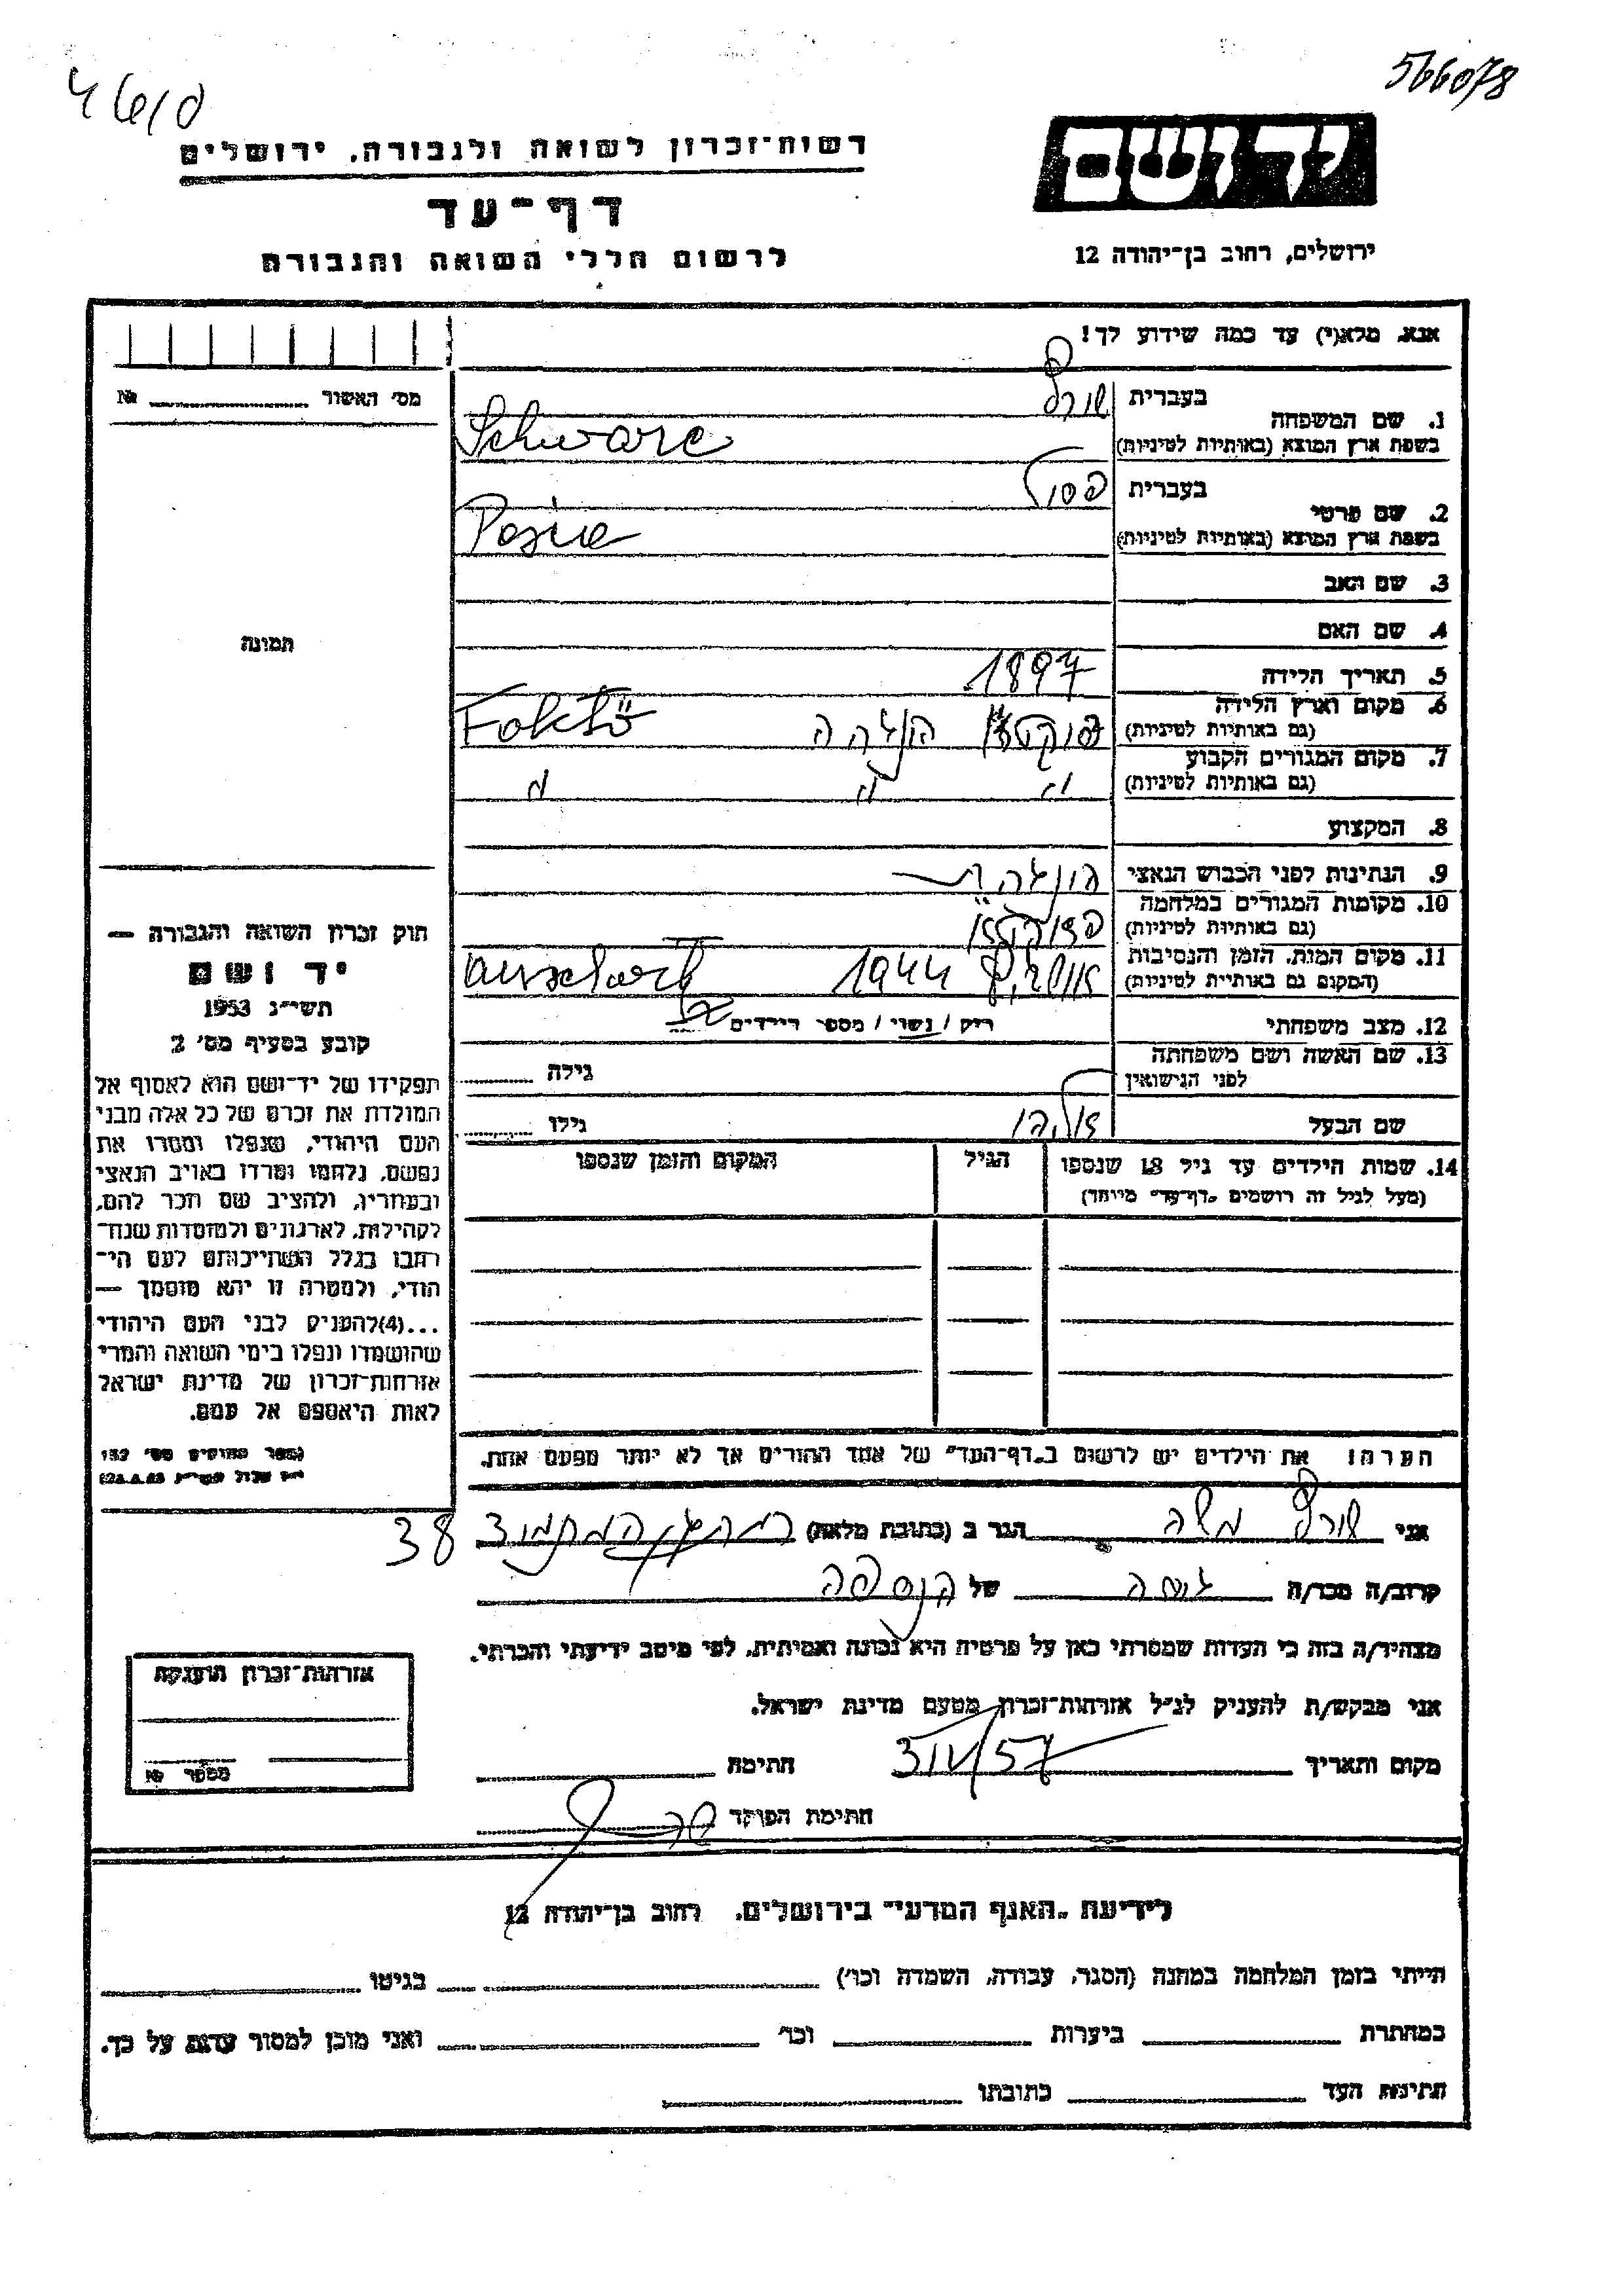 566078
רשות־זכרון לשואה ולגבורה, ירושלים
יד ושם
דף־עד
לרשום חללי השואה והגבורה
ירושלים, רחוב בן־יהודה 12
אנא, מלא(י) עד כמה שידוע לך!
מס׳ האשור № 
1. שם המשפחה
בעברית שורץ
בשפת ארץ המוצא (באותיות לטיניות) Schwarc
2. שם פרטי
בעברית
בשפת ארץ המוצא (באותיות לטיניות)
3. שם האב
4. שם האם
תמונה
5. תאריך הלידה 1897
6. מקום וארץ הלידה
(גם באותיות לטיניות) הונגריה Foktő
7. מקום המגורים הקבוע
(גם באותיות לטיניות) " " "
8. המקצוע
9. הנתינות לפני הכבוש הנאצי הונגרית
10. מקומות המגורים במלחמה
(גם באותיות לטיניות)
11. מקום המות, הזמן והנסיבות
(המקום גם באותיות לטיניות) 1944
12. מצב משפחתי רווק / נשוי / מספר הילדים
13. שם האשה ושם משפחתה
לפני הנישואין גילה
שם הבעל גילו
14. שמות הילדים עד גיל 18 שנספו הגיל המקום והזמן שנספו
(מעל לגיל זה רושמים „דף־עד״ מיוחד)
הערה: את הילדים יש לרשום ב„דף־העד״ של אחד ההורים אך לא יותר מפעם אחת.
חוק זכרון השואה והגבורה —
יד ושם
תשי״ג 1953
קובע בסעיף מס׳ 2
תפקידו של יד־ושם הוא לאסוף אל
המולדת את זכרם של כל אלה מבני
העם היהודי, שנפלו ומסרו את
נפשם, נלחמו ומרדו באויב הנאצי
ובעוזריו, ולהציב שם וזכר להם,
לקהילות, לארגונים ולמוסדות שנח־
רבו בגלל השתייכותם לעם הי־
הודי, ולמטרה זו יהא מוסמך —
...(4)להעניק לבני העם היהודי
שהושמדו ונפלו בימי השואה והמרי
אזרחות־זכרון של מדינת ישראל
לאות היאספם אל עמם.
אני שורץ משה הגר ב (כתובת מלאה) 38
קרוב/ה מכר/ה גיסה של הנספה
מצהיר/ה בזה כי העדות שמסרתי כאן על פרטיה היא נכונה ואמיתית, לפי מיטב ידיעתי והכרתי.
אני מבקש/ת להעניק לנ״ל אזרחות־זכרון מטעם מדינת ישראל.
מקום ותאריך חתימה
חתימת הפוקד
אזרחות־זכרון הוענקה
מספר №
לידיעת „האגף המדעי״ בירושלים, רחוב בן־יהודה 12
הייתי בזמן המלחמה במחנה (הסגר, עבודה, השמדה וכו׳) בגיטו
במחתרת ביערות וכו׳ ואני מוכן למסור עדות על כך.
חתימת העד כתובתו